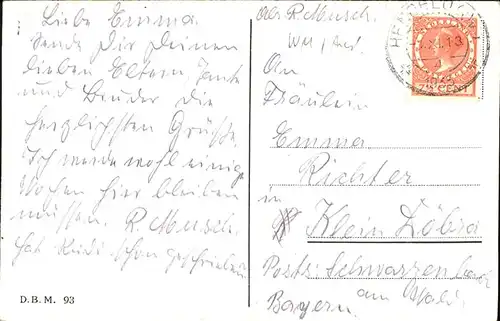 Liebe Emma.
Sende Dir Deinen
lieben Eltern, Tante
und Bruder die
herzlichsten Grüße.
Ich werde wohl einige
Wochen hier bleiben
müssen. R. Musch.
hat Rudi schon geschrieben
D.B.M. 93
Abs. R. Musch.
An
Fräulein
Emma
Richter
in
Klein Döbra
Post: Schwarzenbach
am Wald
Bayern